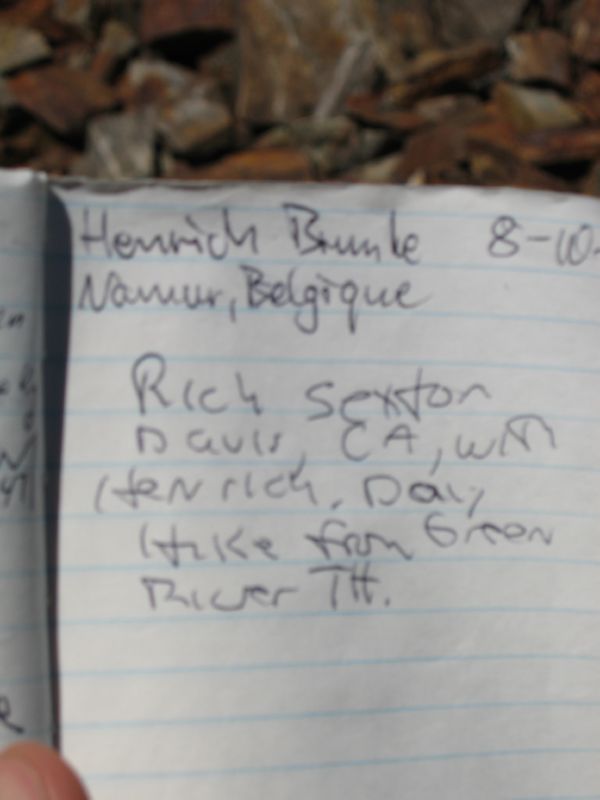 Henrich Brunke 8-10-
Namur, Belgique
Rich Sexton
Davis, CA, with
Henrich. Day
Hike from Green
River TH.